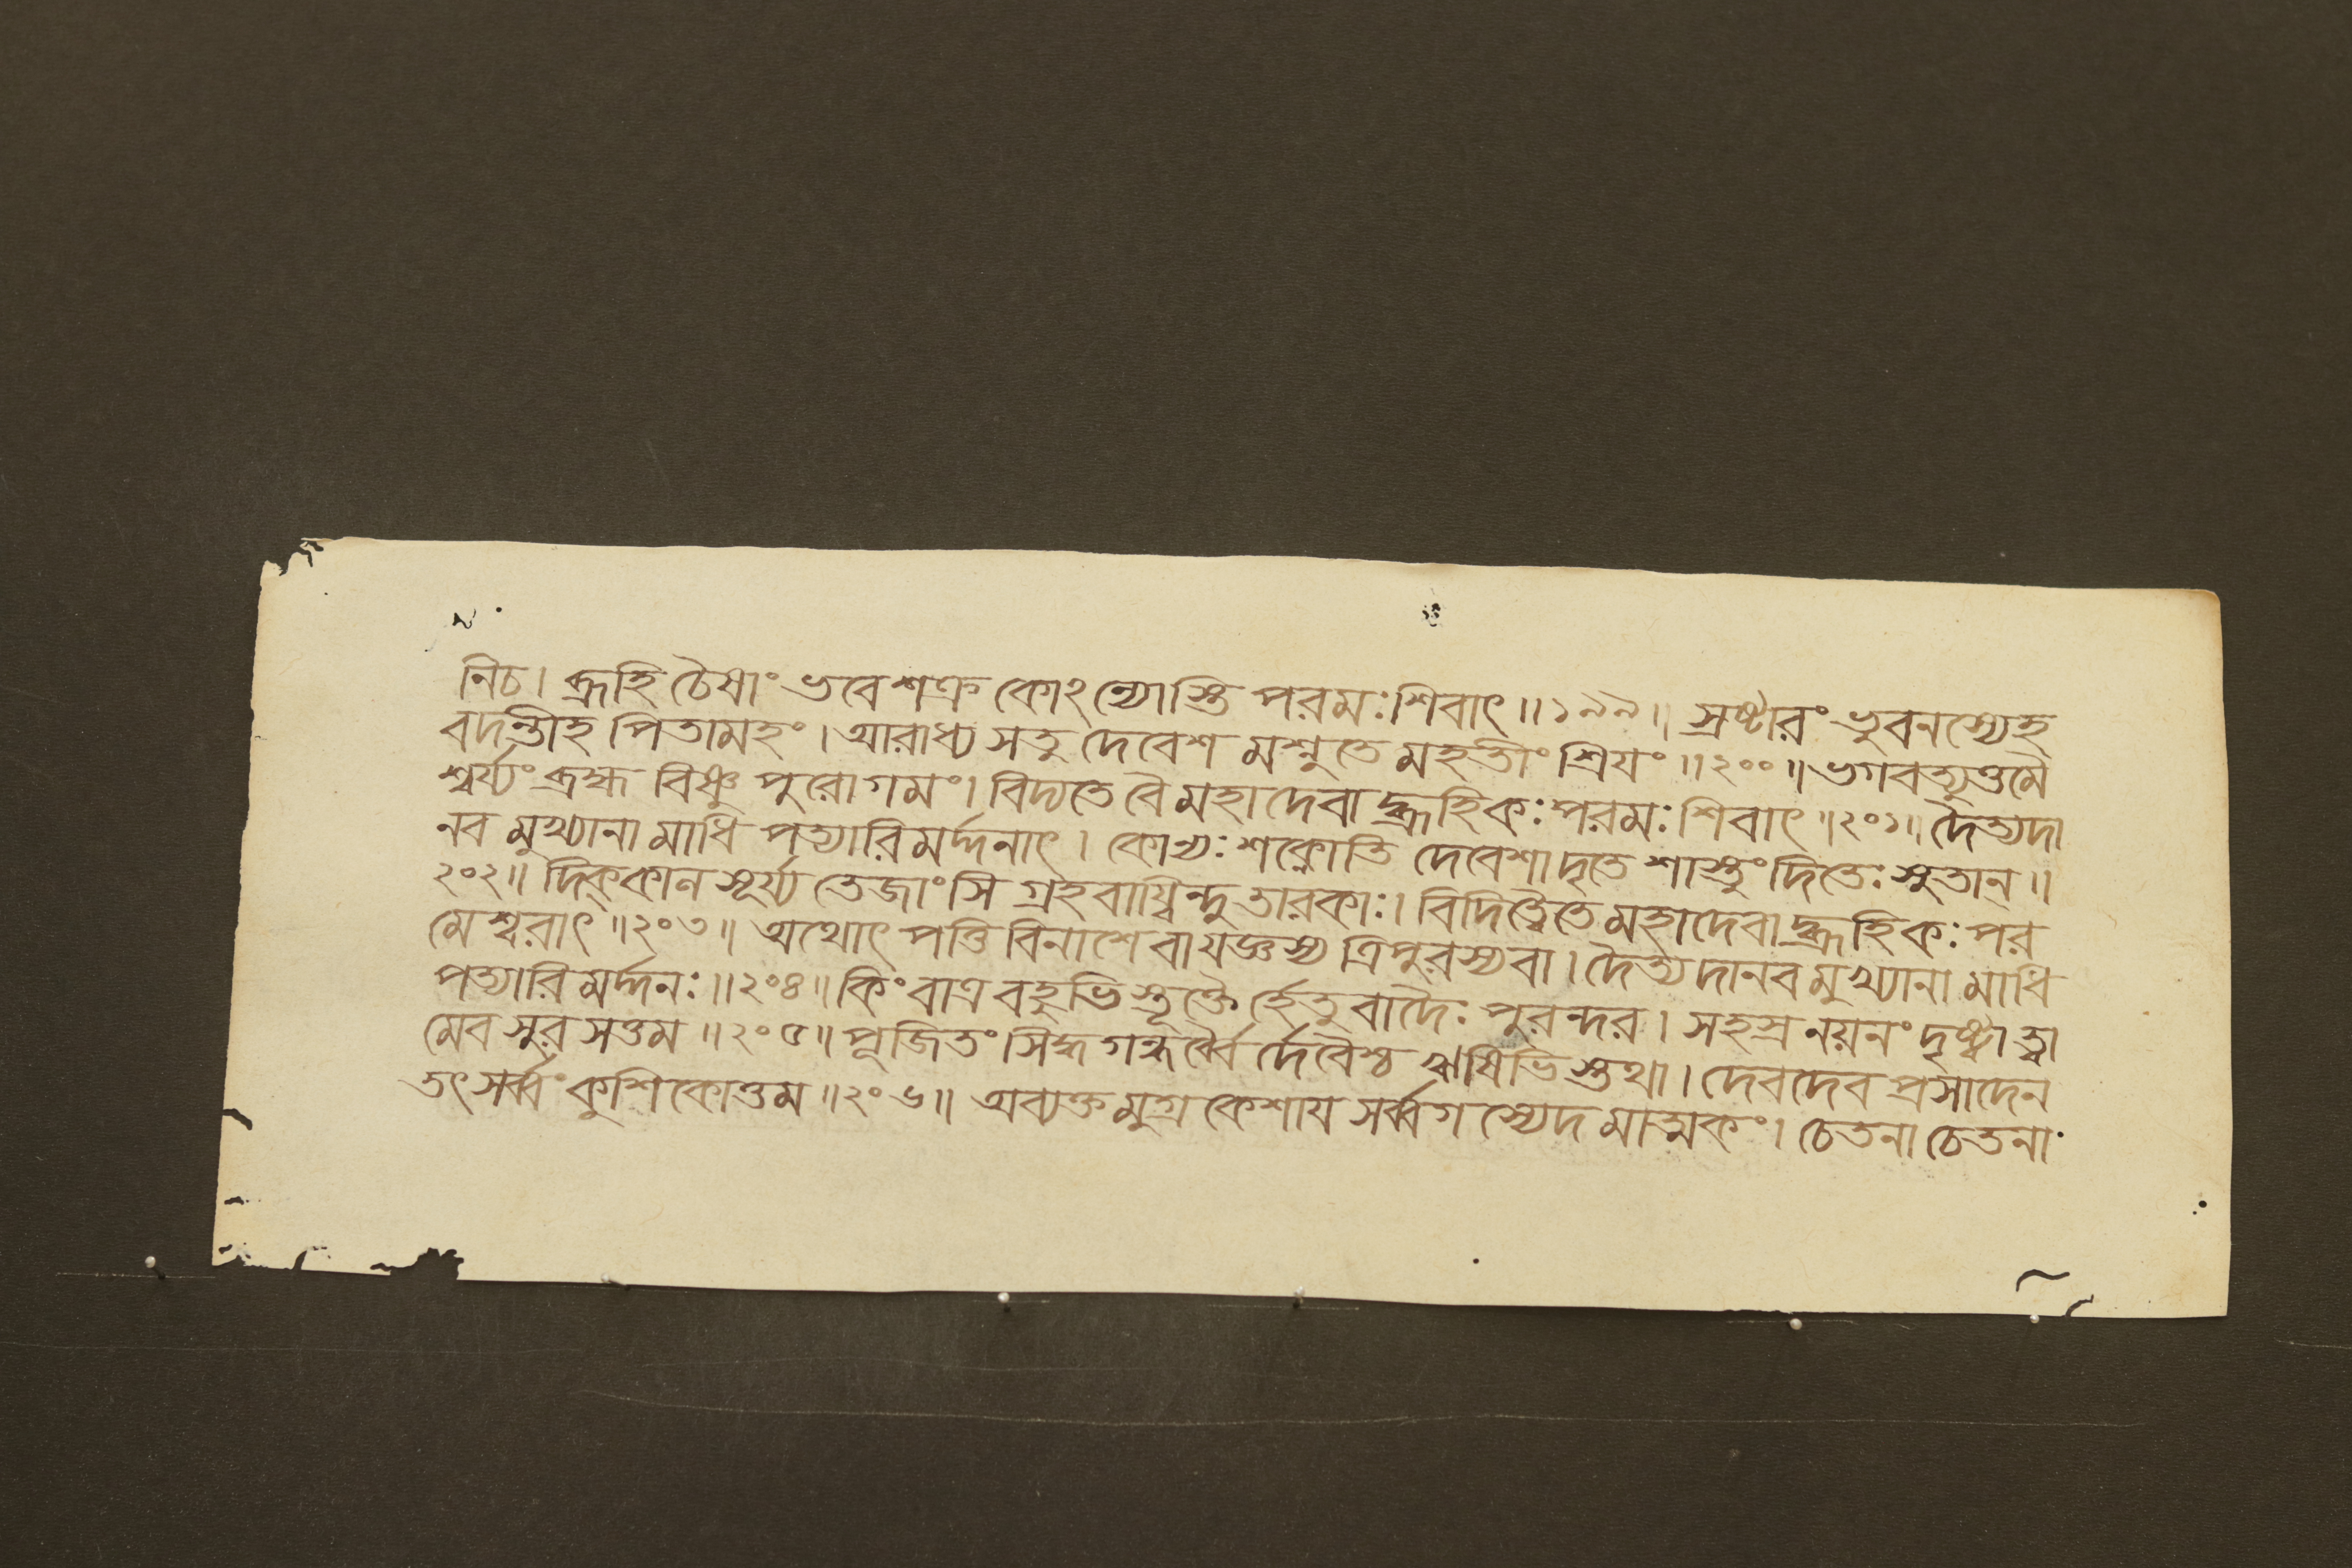 নিচ। ব্রূহি চৈষাং ভবেশক্র কোঽন্যোস্তি পরমঃ শিবাৎ॥১৯৯॥ স্রষ্টারং ভুবনস্যেহ
বদন্তীহ পিতামহং। আরাধ্য সতু দেবেশ মশ্নুতে মহতীং শ্রিযং॥২০০॥ ভগবত্যুত্তমৈ
শ্বর্য্যং ব্রহ্ম বিষ্ণু পুরোগমং। বিদ্যতে বৈ মহাদেবা দ্ব্রূহিকঃ পরমঃ শিবাৎ॥২০১॥ দৈত্যদা
নব মুখ্যানা মাধি পত্যারি মর্দ্দনাৎ। কোন্যঃ শক্নোতি দেবেশাদৃতে শাস্তুং দিতেঃ সুতান্॥
২০২॥ দিক্কান সূর্য্য তেজাংসি গ্রহ বায্বিন্দু তারকাঃ। বিদিত্বৈতে মহাদেবা দ্ব্রূহিকঃ পর
মেশ্বরাৎ॥২০৩॥ অথোৎ পত্তি বিনাশে বা যজ্ঞস্য ত্রিপুরস্যবা। দৈত্য দানব মুখ্যানা মাধি
পত্যারি মর্দ্দনঃ॥২০৪॥ কিং বাত্র বহুভি স্তূক্তৈ র্হেতু বাদৈঃ পুরন্দর। সহস্র নয়নং দৃষ্ট্বা ত্বা
মেব সুর সত্তম॥২০৫॥ পূজিতং সিদ্ধ গন্ধর্ব্বৈ র্দেবৈশ্চ ঋষিভি স্তথা। দেবদেব প্রসাদেন
তৎ সর্ব্বং কুশিকোত্তম॥২০৬॥ অব্যক্ত মুগ্র কেশায সর্ব্বগ স্যেদ মাত্মকং। চেতনা চেতনা